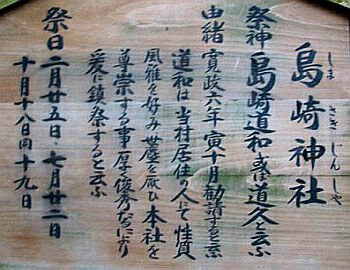 島崎神社
しま ざき じん じや
祭神 島崎道和或は道久と云ふ
由緒 寛政六年寅十月勧請すと云ふ
道和は当村居住の人にて性質
風雅を好み世塵を厭ひ本社を
尊崇する事厚く優秀なにより
爰に鎮祭すると云ふ
祭日 二月廿五日・七月廿二日
十月十八日同十九日